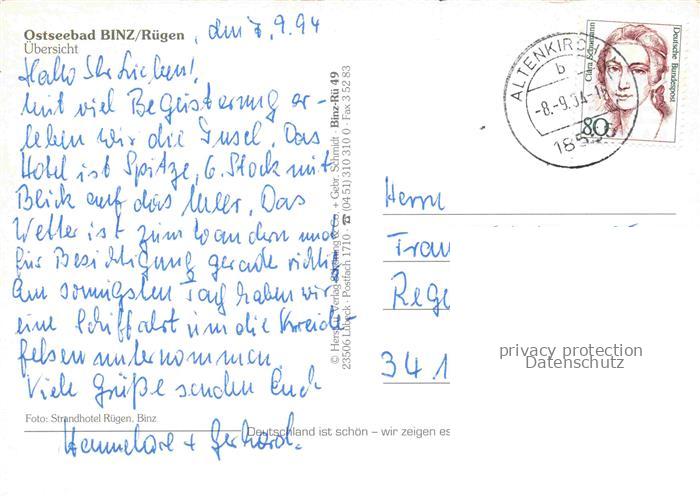 Ostseebad BINZ/Rügen
Übersicht
, den 7.9.94
Hallo Ihr Lieben!
Mit viel Begeisterung er-
leben wir die Insel. Das
Hotel ist Spitze, 6. Stock mit
Blick auf das Meer. Das
Wetter ist zum Wandern und
für Besichtigung gerade richtig
Am sonnigsten Tag haben wir
eine Schiffahrt um die Kreide-
felsen unternommen.
Viele Grüße senden Euch
Hannelore + Gerhard.
Foto: Strandhotel Rügen, Binz
Deutschland ist schön – wir zeigen es
© Herst. u. Verlag Schöning & Co. + Gebr. Schmidt · Binz-Rü 49
23506 Lübeck · Postfach 1710 · ☎ (04 51) 310 310 0 · Fax 3 52 83
ALTENKIRC
b
-8.-9.94-1
185
Clara Schumann
Deutsche Bundespost
80
Herrn
Frau
Rege
34.1
privacy protection
Datenschutz